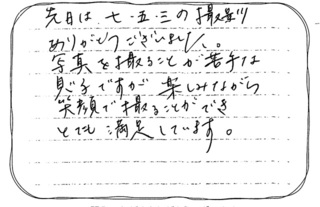 先日は七・五・三の撮影
ありがとうございました。
写真を撮ることが苦手な
息子ですが楽しみながら
笑顔で撮ることができ
とても満足しています。